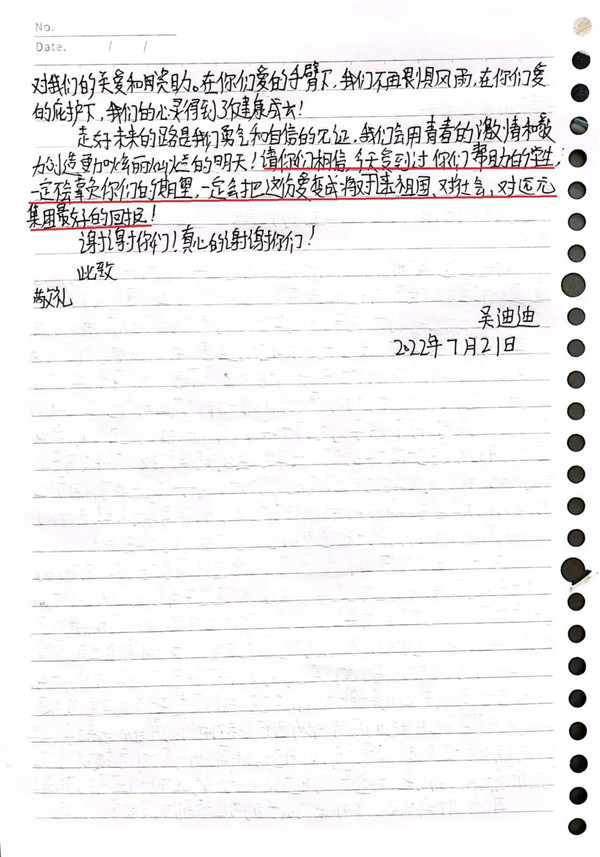 No.
Date. / /
对我们的关爱和资助。在你们爱的手臂下,我们不再畏惧风雨,在你们爱
的庇护下,我们的心灵得到了健康成长!
走好未来的路是我们勇气和自信的见证,我们会用青春的激情和努
力创造更加绚丽灿烂的明天!请你们相信,每一个受到过你们帮助的学生,
一定不会辜负你们的期望,一定会把这份爱变成将对祖国、对社会、对
集团最好的回报!
谢谢你们!真心的谢谢你们!
此致
敬礼
吴迪迪
2022年7月21日